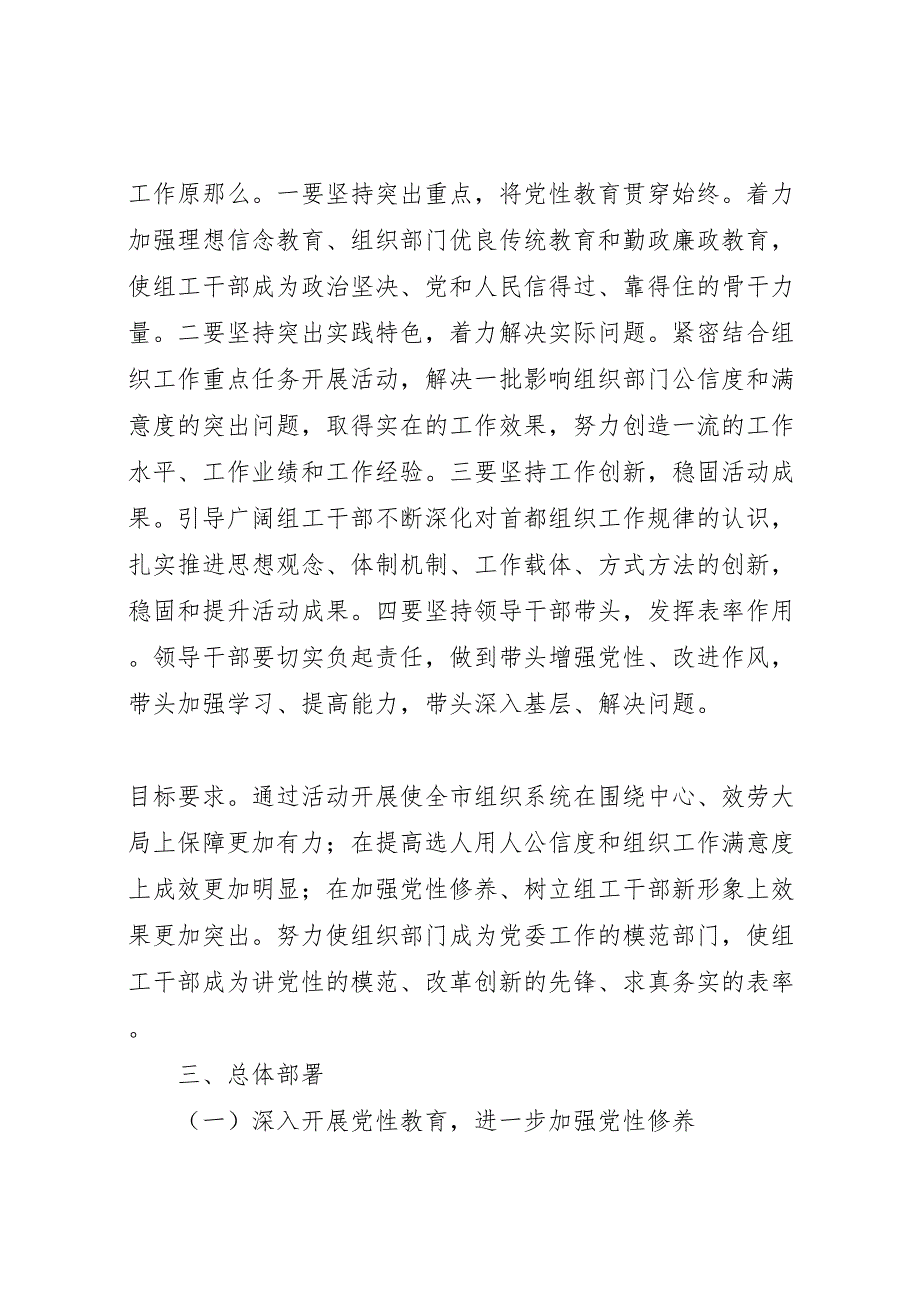 工作原那么。一要坚持突出重点，将党性教育贯穿始终。着力
加强理想信念教育、组织部门优良传统教育和勤政廉政教育，
使组工干部成为政治坚决、党和人民信得过、靠得住的骨干力
量。二要坚持突出实践特色，着力解决实际问题。紧密结合组
织工作重点任务开展活动，解决一批影响组织部门公信度和满
意度的突出问题，取得实在的工作效果，努力创造一流的工作
水平、工作业绩和工作经验。三要坚持工作创新，稳固活动成
果。引导广阔组工干部不断深化对首都组织工作规律的认识，
扎实推进思想观念、体制机制、工作载体、方式方法的创新，
稳固和提升活动成果。四要坚持领导干部带头，发挥表率作用
。领导干部要切实负起责任，做到带头增强党性、改进作风，
带头加强学习、提高能力，带头深入基层、解决问题。
目标要求。通过活动开展使全市组织系统在围绕中心、效劳大
局上保障更加有力；在提高选人用人公信度和组织工作满意度
上成效更加明显；在加强党性修养、树立组工干部新形象上效
果更加突出。努力使组织部门成为党委工作的模范部门，使组
工干部成为讲党性的模范、改革创新的先锋、求真务实的表率
。
三、总体部署
（一）深入开展党性教育，进一步加强党性修养